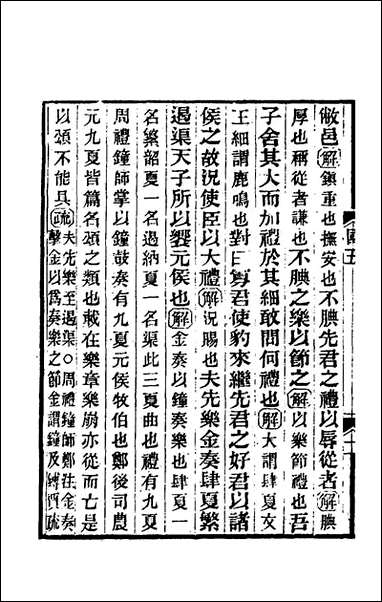 敝邑解鎮重也撫安也不腆先君之禮以辱從者解腆
厚也稱從者謙也不腆之樂以節之解以樂節禮也吾
子舍其大而加禮於其細敢問何禮也解大謂肆夏文
王細謂鹿鳴也對曰寡君使豹來繼先君之好君以諸
侯之故況使臣以大禮解況賜也夫先樂金奏肆夏繁
遏渠天子所以饗元侯也解金奏以鐘奏樂也肆夏一
名繁韶夏一名遏納夏一名渠此三夏曲也禮有九夏
周禮鐘師掌以鐘鼓奏有九夏元侯牧伯也鄭後司農
元九夏皆篇名頌之類也載在樂章樂崩亦從而亡是
以頌不能具疏夫先樂至遏渠○周禮鐘師鄭注金奏
擊金以爲奏樂之節金謂鐘及鎛賈疏
國五